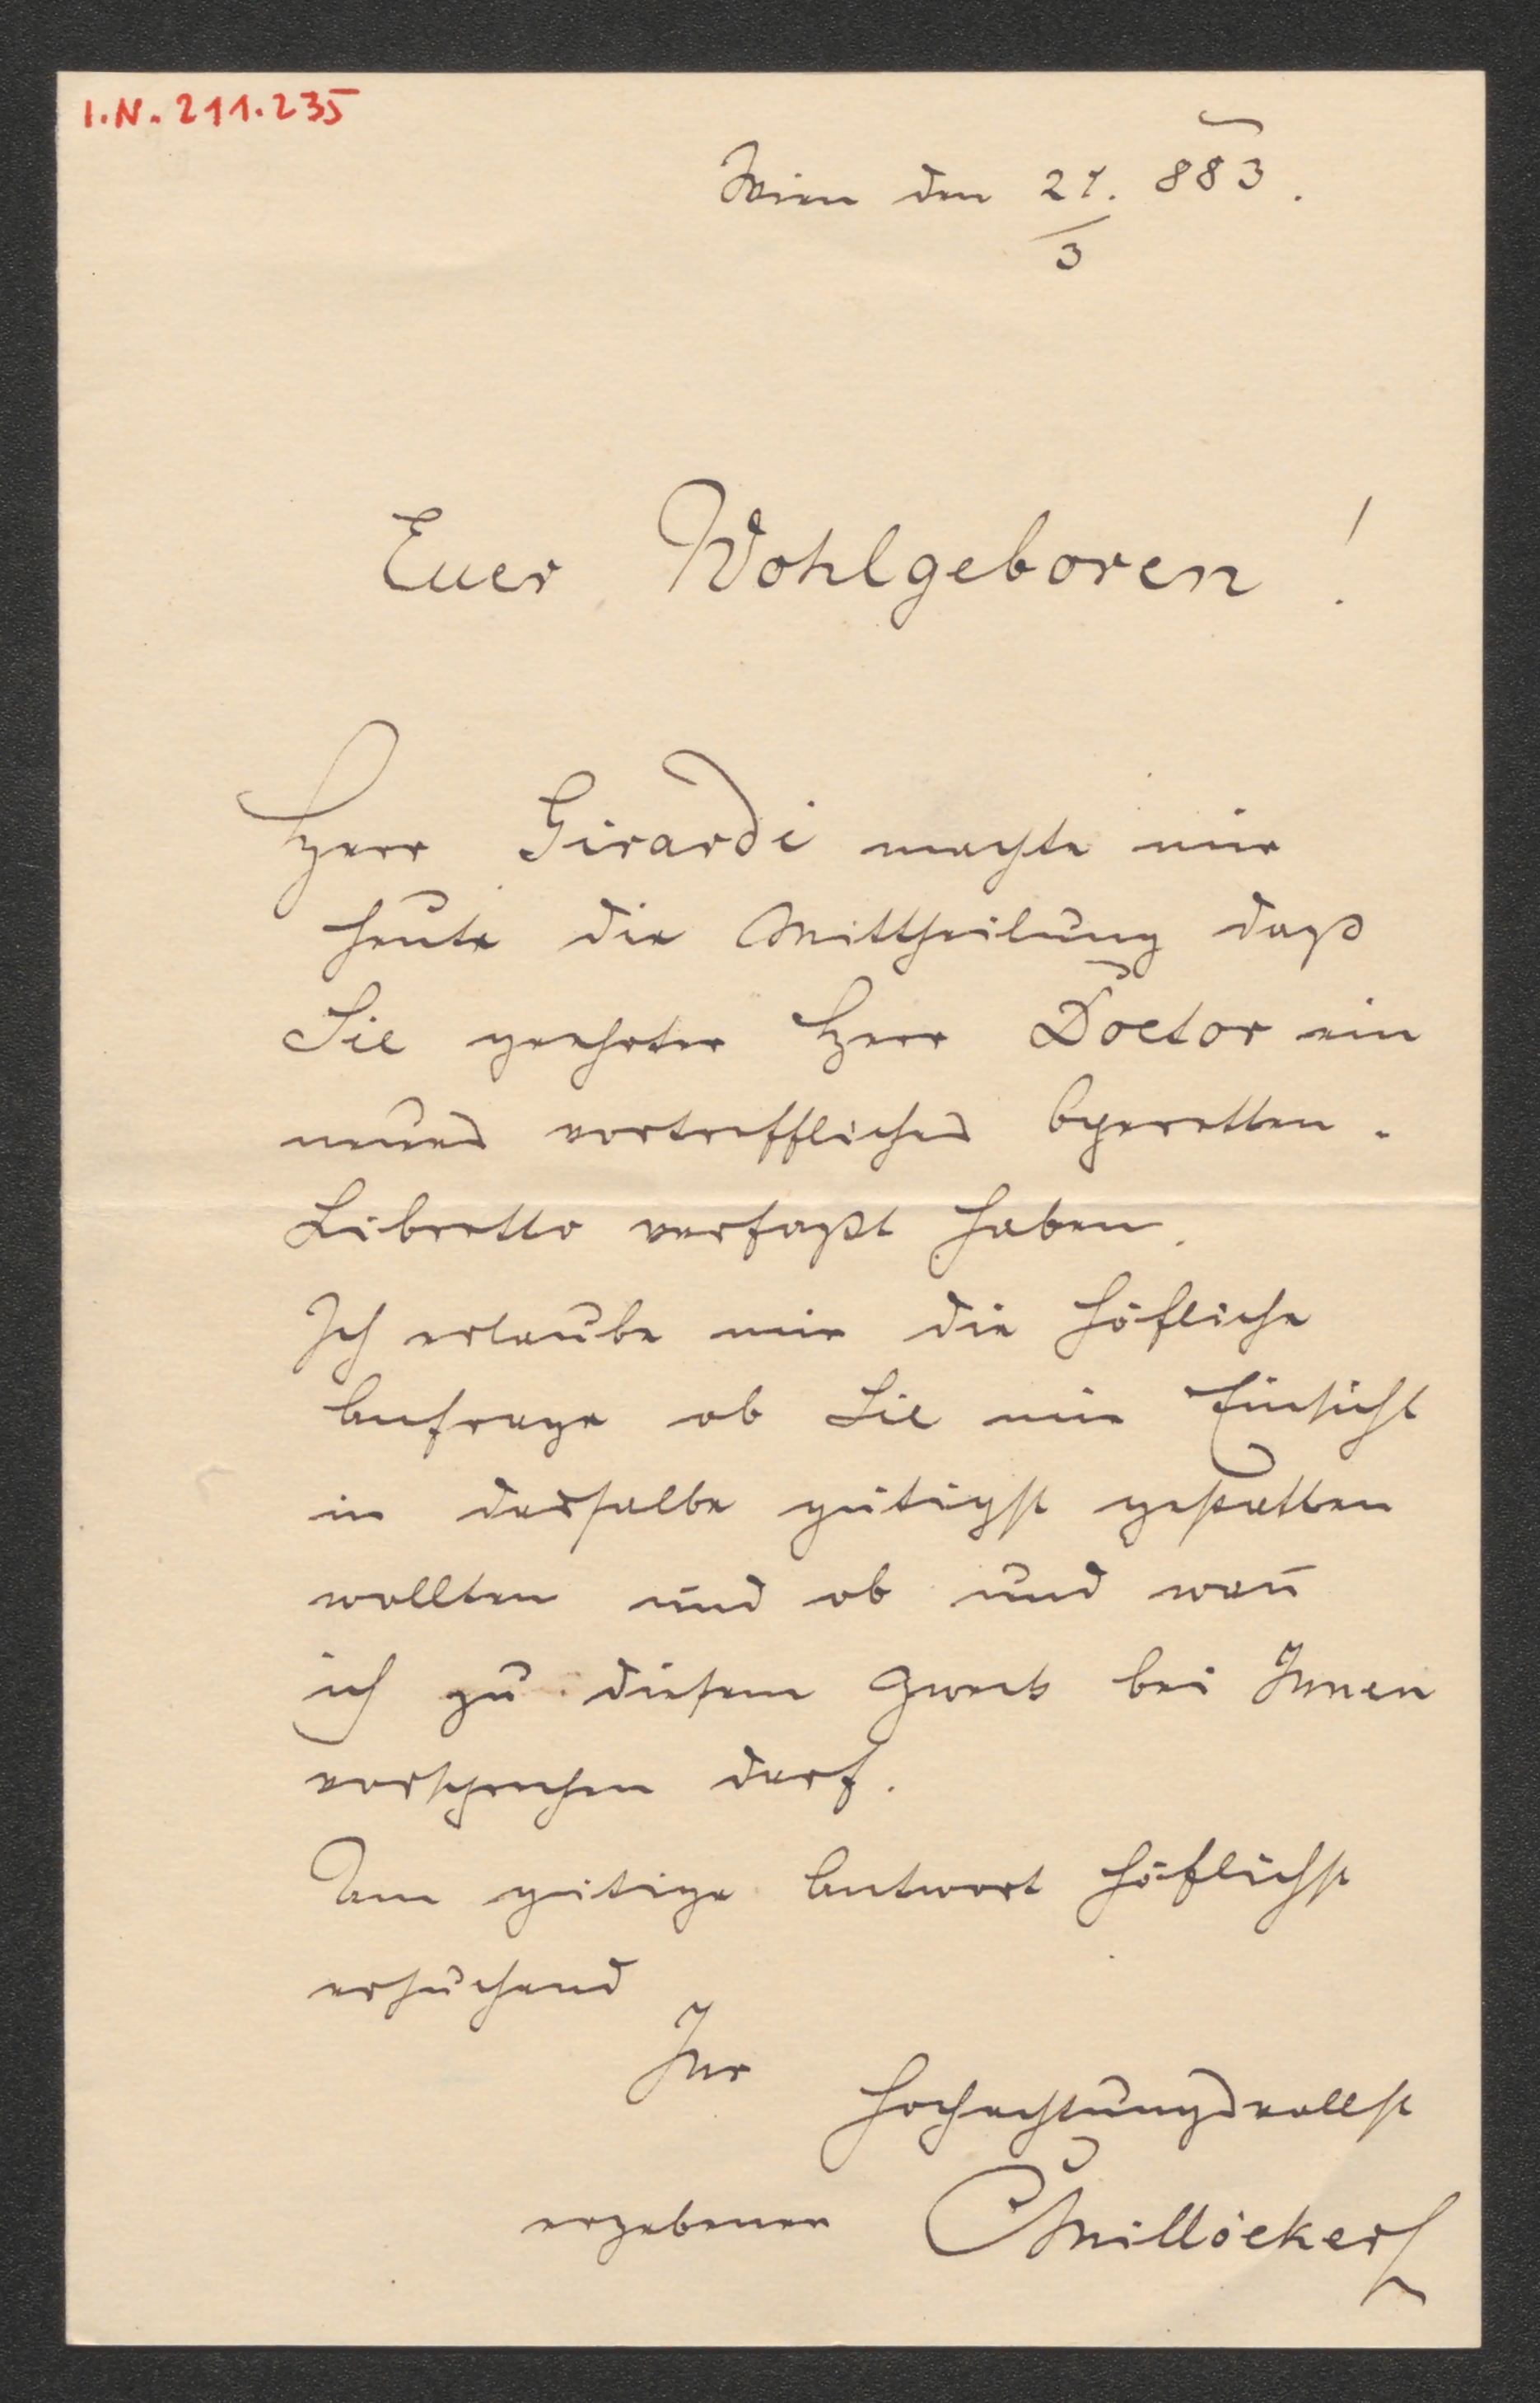 I.N. 211.235
Wien den 21. 883.
3
Euer Wohlgeboren!
Herr Girardi machte mir
heute die Mittheilung daß
Sie geehrter Herr Doctor ein
neues vortreffliches Operetten-
Libretto verfaßt haben.
Ich erlaube mir die höfliche
Anfrage ob Sie mir Einsicht
in dasselbe gütigst gestatten
wollten und ob und wan̅
ich zu diesem Zweck bei Ihnen
vorsprechen darf.
Um gütige Antwort höflichst
ersuchend
Ihr
hochachtungsvollst
ergebener CMillöcker